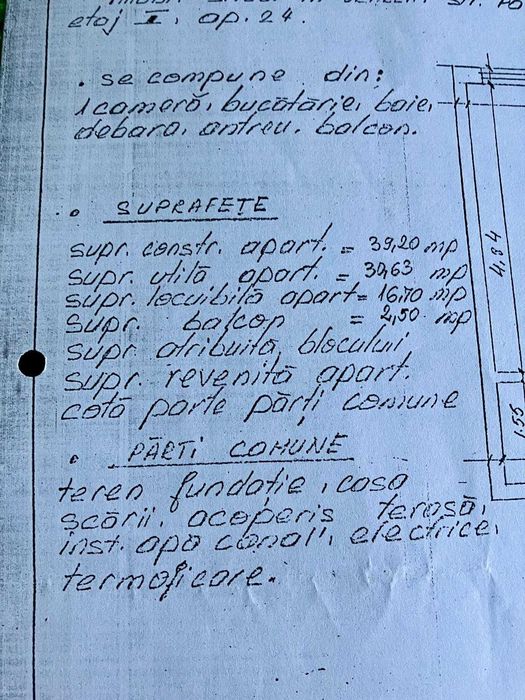 etaj I, ap. 24.
• se compune din:
1 cameră, bucătărie, baie,
debara, antreu, balcon.
• SUPRAFEȚE
supr. constr. apart. = 39,20 mp
supr. utilă apart. = 30,63 mp
supr. locuibilă apart = 16,70 mp
supr. balcon = 2,50 mp
supr. atribuită blocului
supr. revenită apart.
cotă parte părți comune
• PĂRȚI COMUNE
teren fundație, casa
scării, acoperis terasă,
inst. apă canal, electrice,
termoficare.
4,84
1.55